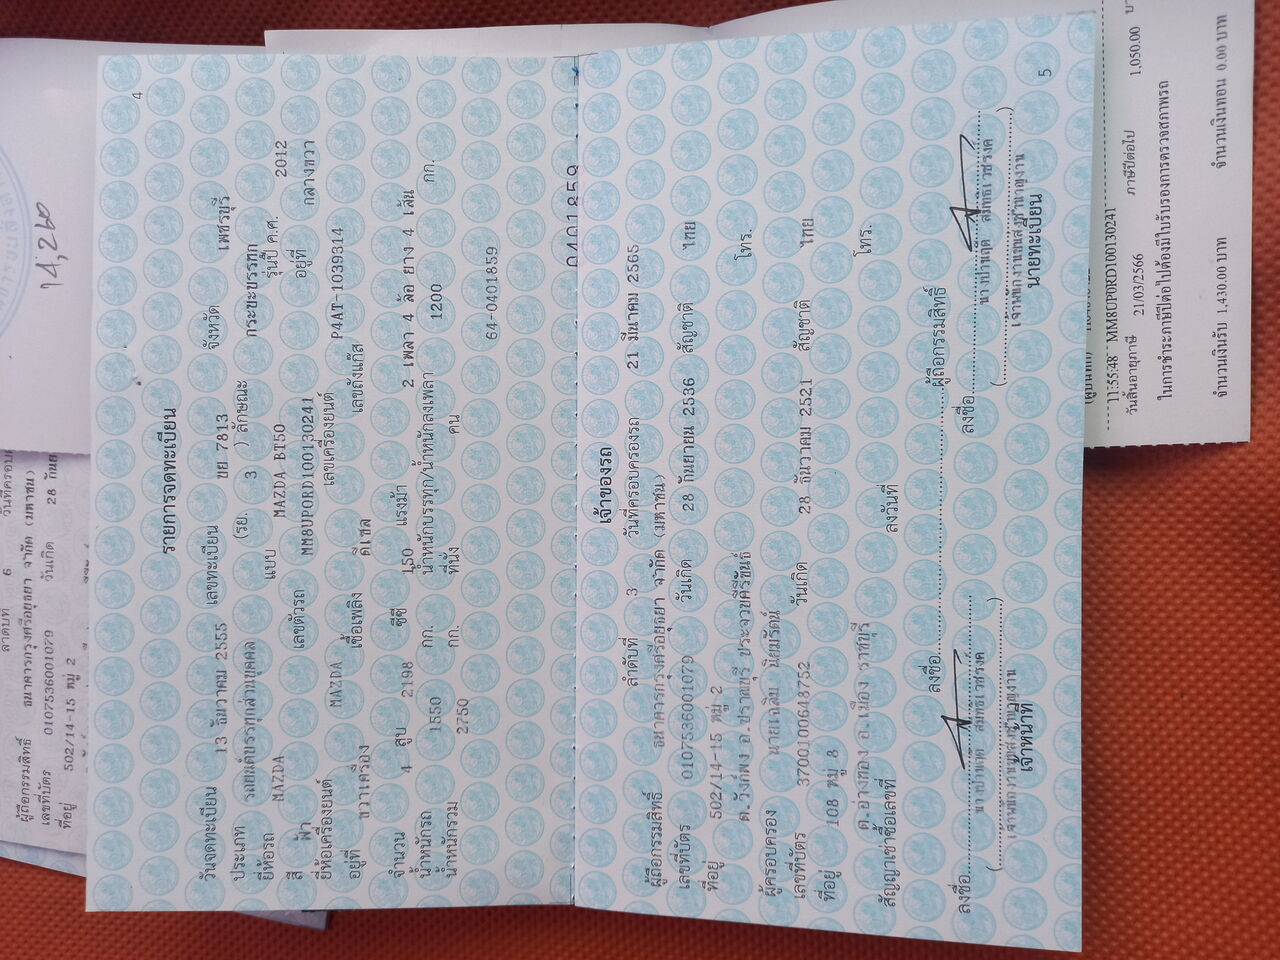 4
รายการจดทะเบียน
วันจดทะเบียน 13 ธันวาคม 2555 เลขทะเบียน บย 7813 จังหวัด เพชรบุรี
ประเภท รถยนต์บรรทุกส่วนบุคคล (รย. 3 ) ลักษณะ กระบะบรรทุก
ยี่ห้อรถ MAZDA แบบ MAZDA BT50 รุ่นปี ค.ศ. 2012
สี ฟ้า เลขตัวรถ MM8UP0RD100130241 อยู่ที่ กลางขวา
ยี่ห้อเครื่องยนต์ MAZDA เลขเครื่องยนต์ P4AT-1039314
อยู่ที่ ขวาเครื่อง เชื้อเพลิง ดีเซล เลขถังแก๊ส
จำนวน 4 สูบ 2198 ซีซี 150 แรงม้า 2 เพลา 4 ล้อ ยาง 4 เส้น
น้ำหนักรถ 1550 กก. น้ำหนักบรรทุก/น้ำหนักลงเพลา 1200 กก.
น้ำหนักรวม 2750 กก. ที่นั่ง คน
64-0401859
0401859
เจ้าของรถ
ลำดับที่ 3 วันที่ครอบครองรถ 21 มีนาคม 2565
ผู้ถือกรรมสิทธิ์ ธนาคารกรุงศรีอยุธยา จำกัด (มหาชน)
เลขที่บัตร 0107536001079 วันเกิด 28 กันยายน 2536 สัญชาติ ไทย
ที่อยู่ 502/14-15 หมู่ 2 โทร.
ต.วังก์พง อ.ปราณบุรี ประจวบคีรีขันธ์
ผู้ครอบครอง นายเฉลิม นิยมรัตน์
เลขที่บัตร 3700100648752 วันเกิด 28 ธันวาคม 2521 สัญชาติ ไทย
ที่อยู่ 108 หมู่ 8 โทร.
ต.อ่างทอง อ.เมือง ราชบุรี
สัญญาเช่าซื้อเลขที่ ลงวันที่
ลงชื่อ ผู้ถือกรรมสิทธิ์
ลงชื่อ ลงชื่อ
เจ้าหน้าที่ นายทะเบียน
5
14,260
ลำดับที่ 6
ผู้ถือกรรมสิทธิ์ ธนาคารกรุงศรีอยุธยา จำกัด (มหาชน)
เลขที่บัตร 0107536001079 วันเกิด 28
ที่อยู่ 502/14-15 หมู่ 2
11:55:48 MM8UP0RD100130241
วันสิ้นอายุภาษี 21/03/2566 ภาษีปีต่อไป 1,050.00
ในการชำระภาษีปีต่อไปต้องมีใบรับรองการตรวจสภาพรถ
จำนวนเงินรับ 1,430.00 บาท จำนวนเงินทอน 0.00 บาท